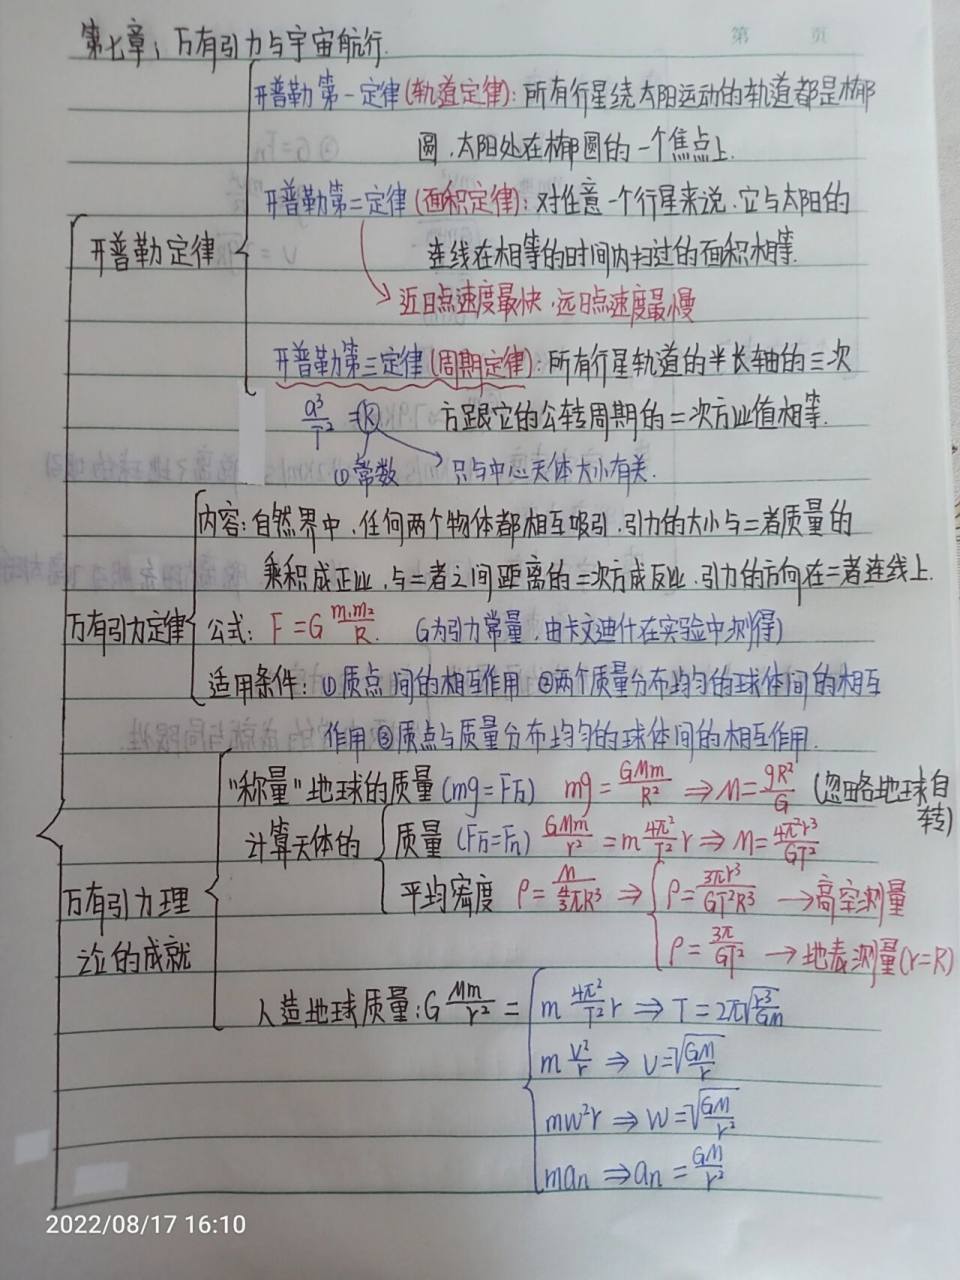 第 页
第七章：万有引力与宇宙航行.
开普勒第一定律(轨道定律)：所有行星绕太阳运动的轨道都是椭
圆，太阳处在椭圆的一个焦点上.
开普勒第二定律(面积定律)：对任意一个行星来说，它与太阳的
开普勒定律
连线在相等的时间内扫过的面积相等.
近日点速度最快，远日点速度最慢
开普勒第三定律(周期定律)：所有行星轨道的半长轴的三次
a³/T² = k 方跟它的公转周期的二次方比值相等.
①常数 只与中心天体大小有关.
内容：自然界中，任何两个物体都相互吸引，引力的大小与二者质量的
乘积成正比，与二者之间距离的二次方成反比，引力的方向在二者连线上.
万有引力定律 公式：F=G m₁m₂/R. G为引力常量，由卡文迪什在实验中测得)
适用条件：①质点间的相互作用 ②两个质量分布均匀的球体间的相互
作用 ③质点与质量分布均匀的球体间的相互作用.
“称量”地球的质量(mg=F万) mg=GMm/R² ⇒ M=gR²/G (忽略地球自
转)
计算天体的 质量(F万=Fn) GMm/r² = m 4π²/T² r ⇒ M=4π²r³/GT²
万有引力理 平均密度 ρ=M/(4/3 πR³) ⇒ ρ=3πr³/GT²R³ → 高空测量
论的成就 ρ=3π/GT² → 地表测量(r=R)
人造地球质量：G Mm/r² = m 4π²/T² r ⇒ T=2π√(r³/Gm)
m v²/r ⇒ v=√(GM/r)
mw²r ⇒ w=√(GM/r³)
man ⇒ an = GM/r²
2022/08/17 16:10